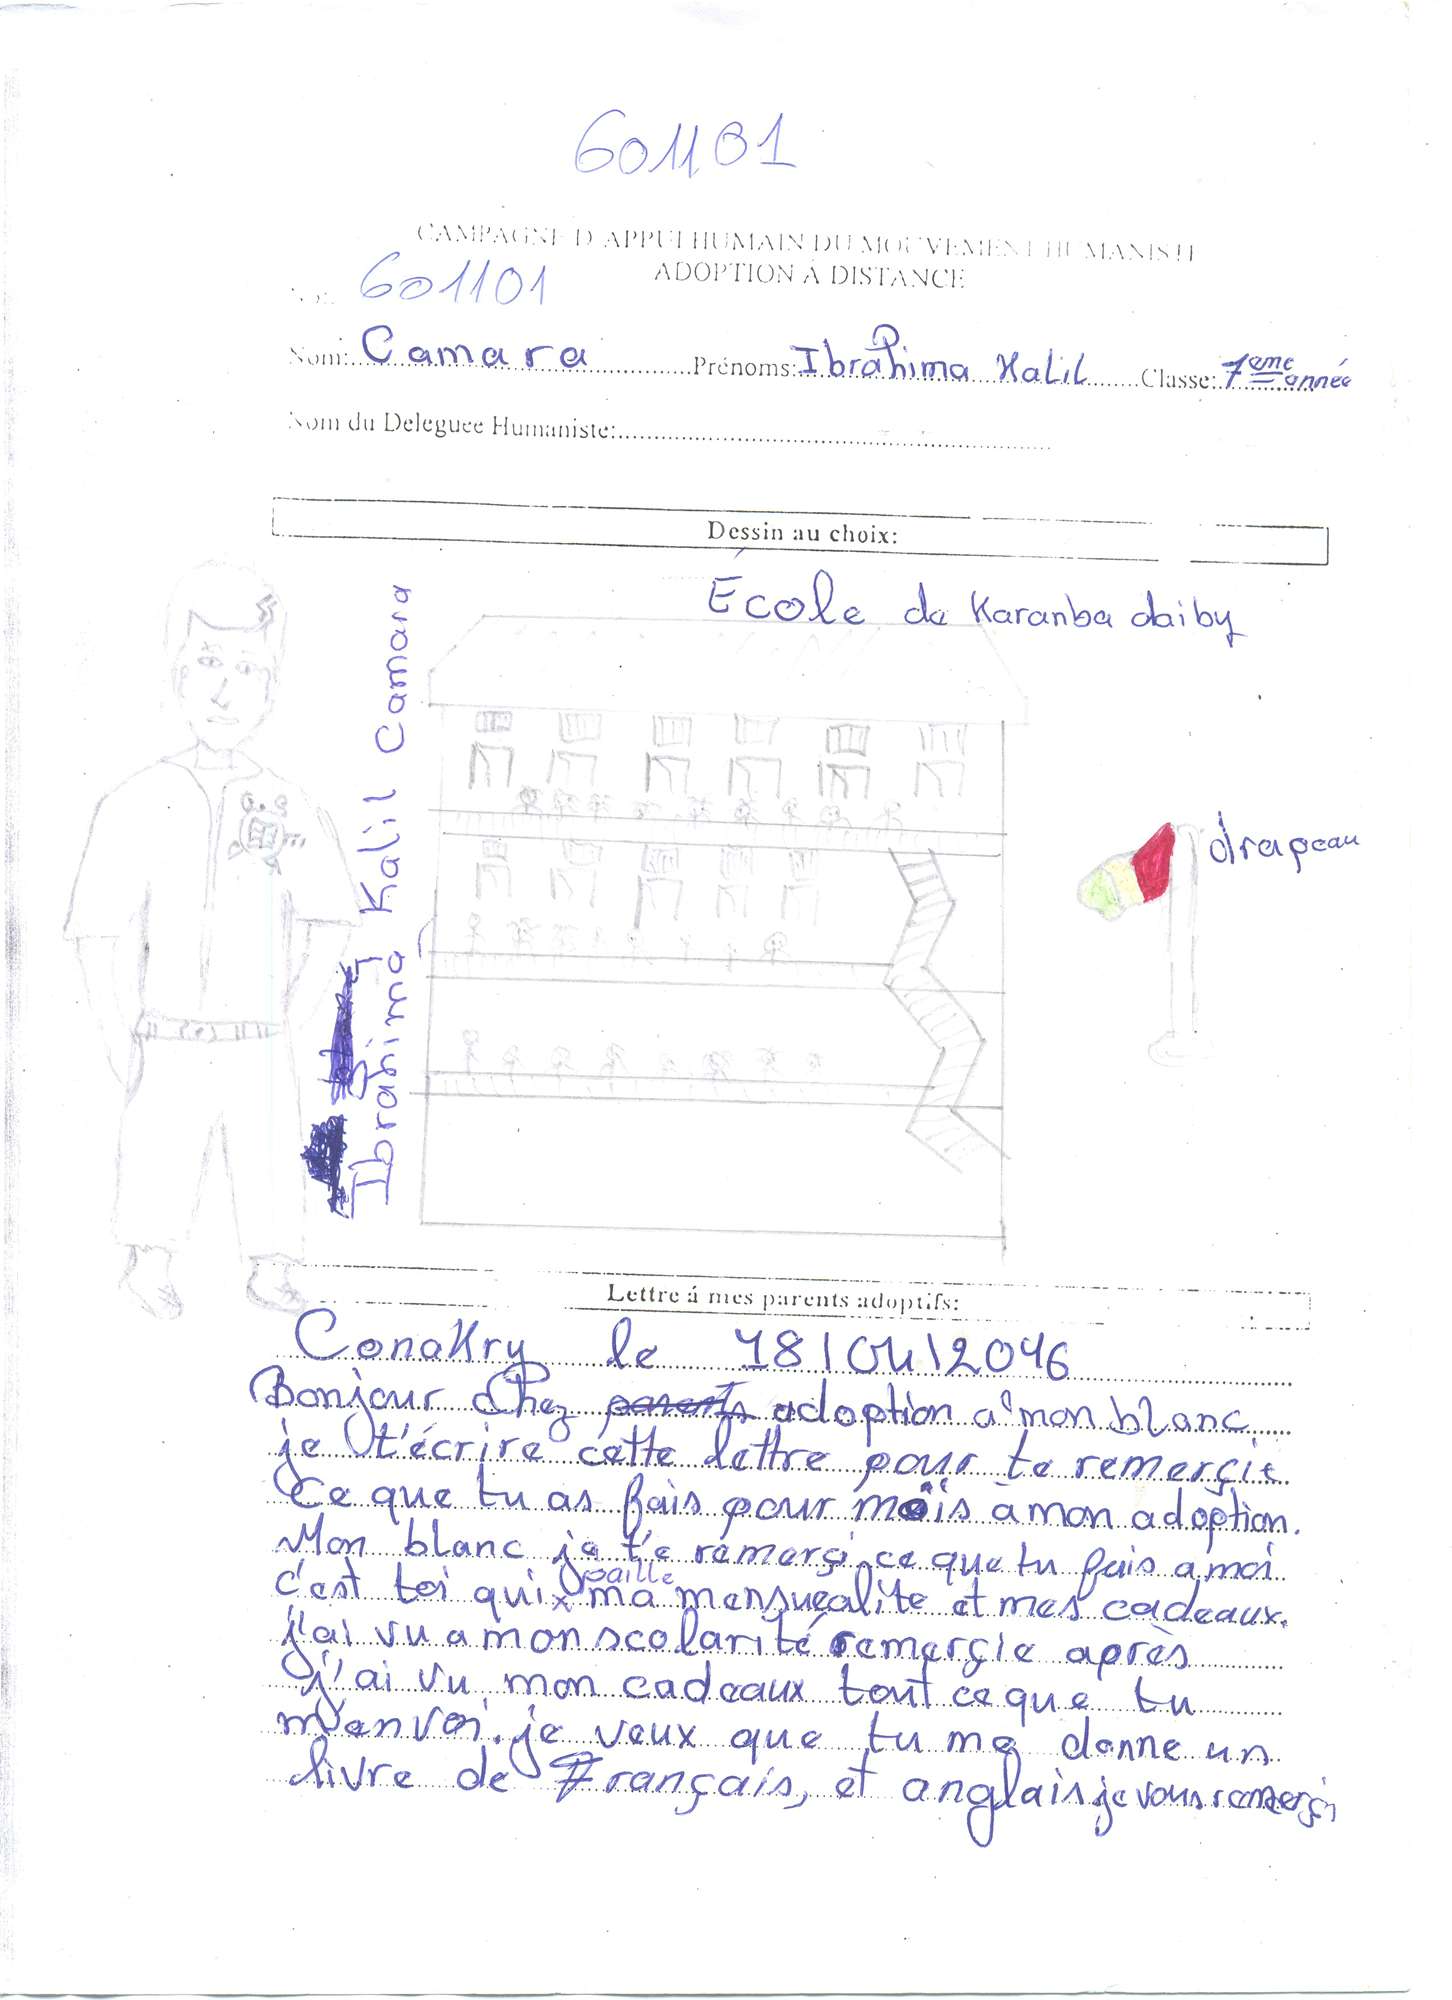 601101
CAMPAGNE D'APPUI HUMAIN DU MOUVEMENT HUMANISTE
ADOPTION Á DISTANCE
601101
Nom: Camara Prénoms: Ibrahima Kalil Classe: 7ème année
Nom du Deleguee Humaniste:
Dessin au choix:
École de Karanba daiby
Ibrahima Kalil Camara
drapeau
Lettre á mes parents adoptifs:
Conakry le 18/04/2016
Bonjour Chez parents adoption a mon blanc
je t'écrire cette lettre pour te remerçie
Ce que tu as fais pour moîs à mon adoption.
Mon blanc je t'e remerçi ce que tu fais a moi
c'est toi qui paille ma mensuealite et mes cadeaux.
j'ai vu a mon scolarité remerçie après
j'ai vu mon cadeaux tout ce que tu
m'envoi. je veux que tu me donne un
livre de Français, et anglais je vous remerçi